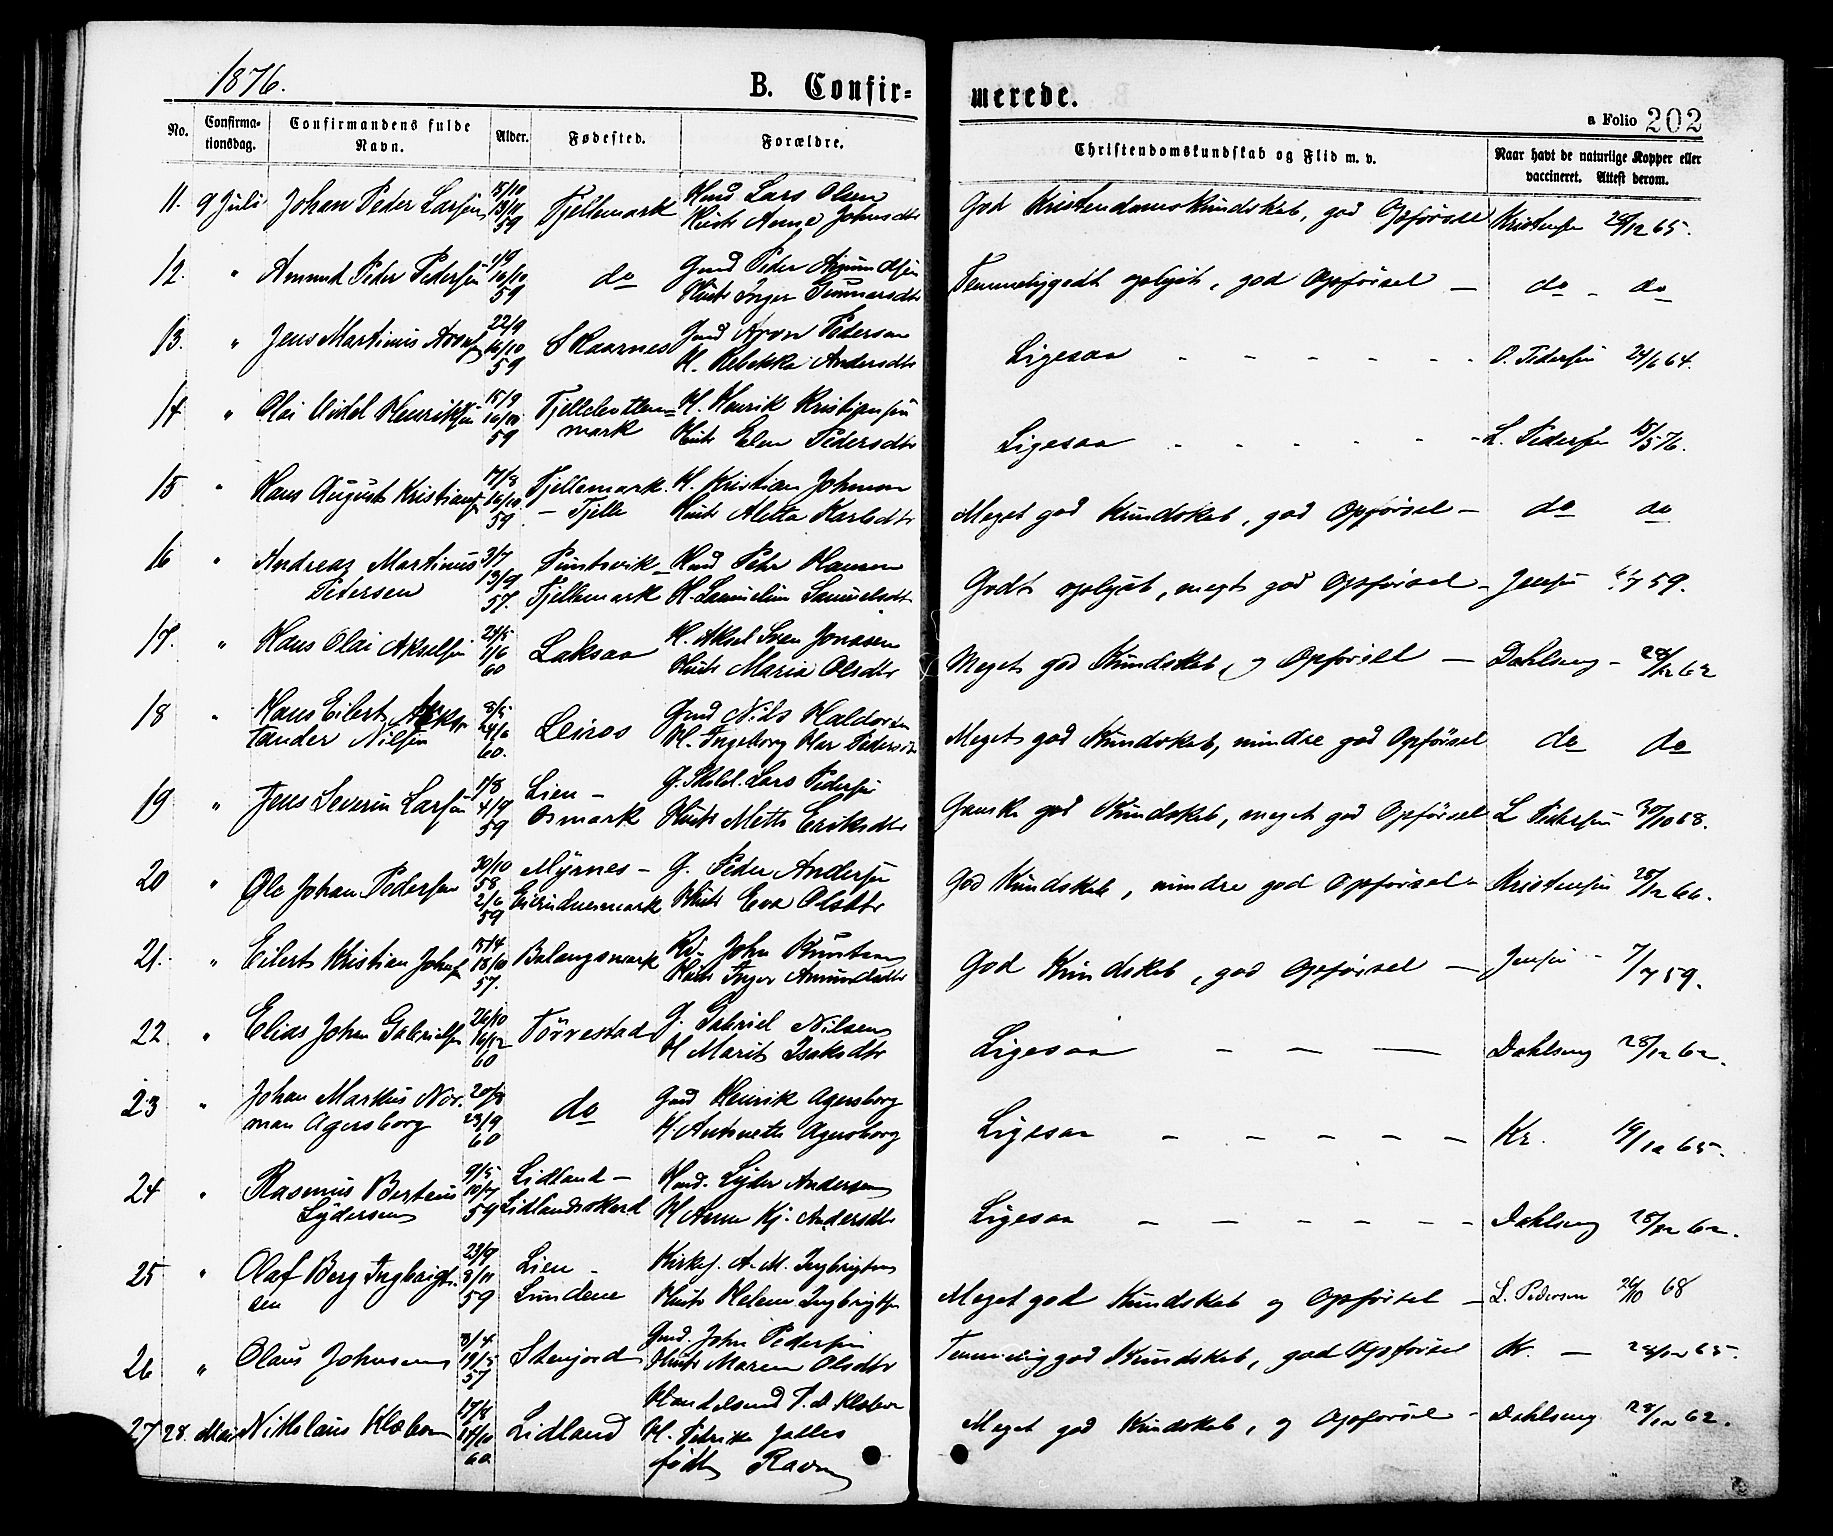 1876.
B. Confir=
merede.
a Folio 202
No.
Confirma-
tionsdag.
Confirmandens fulde
Navn.
Alder.
Fødested.
Forældre.
Christendomskundskab og Flid m. v.
Naar havt de naturlige Kopper eller
vaccineret. Attest derom.
11. 9 Juli Johan Peder Larsen 59 Fjellemark Lars Olsen
Anne Johnsdtr
God Kristendomskundskab, god Opførsel 65.
12. " Amund Peder Pedersen 59 do Gmd Peder Amundsen
Inger Gunnarsdtr
oplyst, god Opførsel — do - do
13. " Jens Martinus 22/9 59 Gmd Aron Pedersen
H. Rebekka Andersdtr
Ligesaa - - - - - O. Pedersen 24/6 64.
14 " Olai Henriksen 15/9 59 mark H. Henrik
Hust Elen Pedersdtr
Ligesaa - - - - - L. Pedersen 76.
15 " Hans August 17/8 59 Fjellemark H. Kristian Johnsen
— Fjelle Hust Aletta Karlsdtr
Meget god Kundskab, god Opførsel — do do
16 " Andreas Martinus 3/7 Hmd Peder Hansen
Petersen 57. Fjellemark H. Samueldtr
Godt oplyst, meget god Opførsel - Jensen 59.
17. " Hans Olai Akselsen 1/6 60 Laksaa H. Aksel Sven Jonasen
Hust Maria Olsdtr
Meget god Kundskab, og Opførsel — Dahlseng - 28/12 62
18 " Hans Eilert Aleks-
tander Nilsen 8/5 60. Leiros Gmd Nils Haldorsen
H. Ingeborg
Meget god Kundskab, mindre god Opførsel do do
19 " Jens Severin Larsen 1/8 4/9 59 Lien -
Osmark Lars Pedersen
Hust Mette Eriksdtr
Ganske god Kundskab, meget god Opførsel L Pedersen 68.
20 " Ole Johan Pedersen 30/10 58 2/6 59 Myrnes - G. Peder Andersen
Hust Eva Olsdtr
God Kundskab, mindre god Opførsel - Kristensen 28/12 66.
21. " Eilert Kristian 15/4 18/10 57. Balangsmark John Knutsen
Hust Inger Amundsdtr
God Kundskab, god Opførsel — Jensen - 7/7 59.
22 " Elias Johan Gabrielsen 26/10 16/12 60 Törrestad G. Gabriel Nilsen
H Marit Isaksdtr
Ligesaa - - — Dahlseng 28/12 62.
23 " Johan Markus Nor-
man Agersborg 23/9 60 do Gmd Henrik Agersborg
H. Antonette Agersborg
Ligesaa - - - - - Kr. 19/12 65.
24 " Rasmus Berteus
Lydersen 9/5 10/7 59 Lidland - Hmd. Lyder Andersen
H Anne Kj. Andersdtr
Ligesaa - - - - - Dahlseng 28/12 62.
25 " Olaf Berg Ingbrigt-
sen 23/9 8/11 59 Lien -
Lundene Kirkes. A. M. Ingbrigtsen
Hust Helene Ingbrigtsen
Meget god Kundskab og Opførsel - L. Pedersen 26/10 68
26 " Olaus Johnsen 8/4 19/5 57 Stenjord Gmd. John Pedersen
Hust Maren Olsdtr
Temmelig god Kundskab, god Opførsel Kr. — 28/12 65.
27 28. Mai Nikolaus Klæboe 60 Lidland Handelsmd
H. Petrike Jalles
født Ravn
Meget god Kundskab, og Opførsel - Dahlseng 28/12 62.